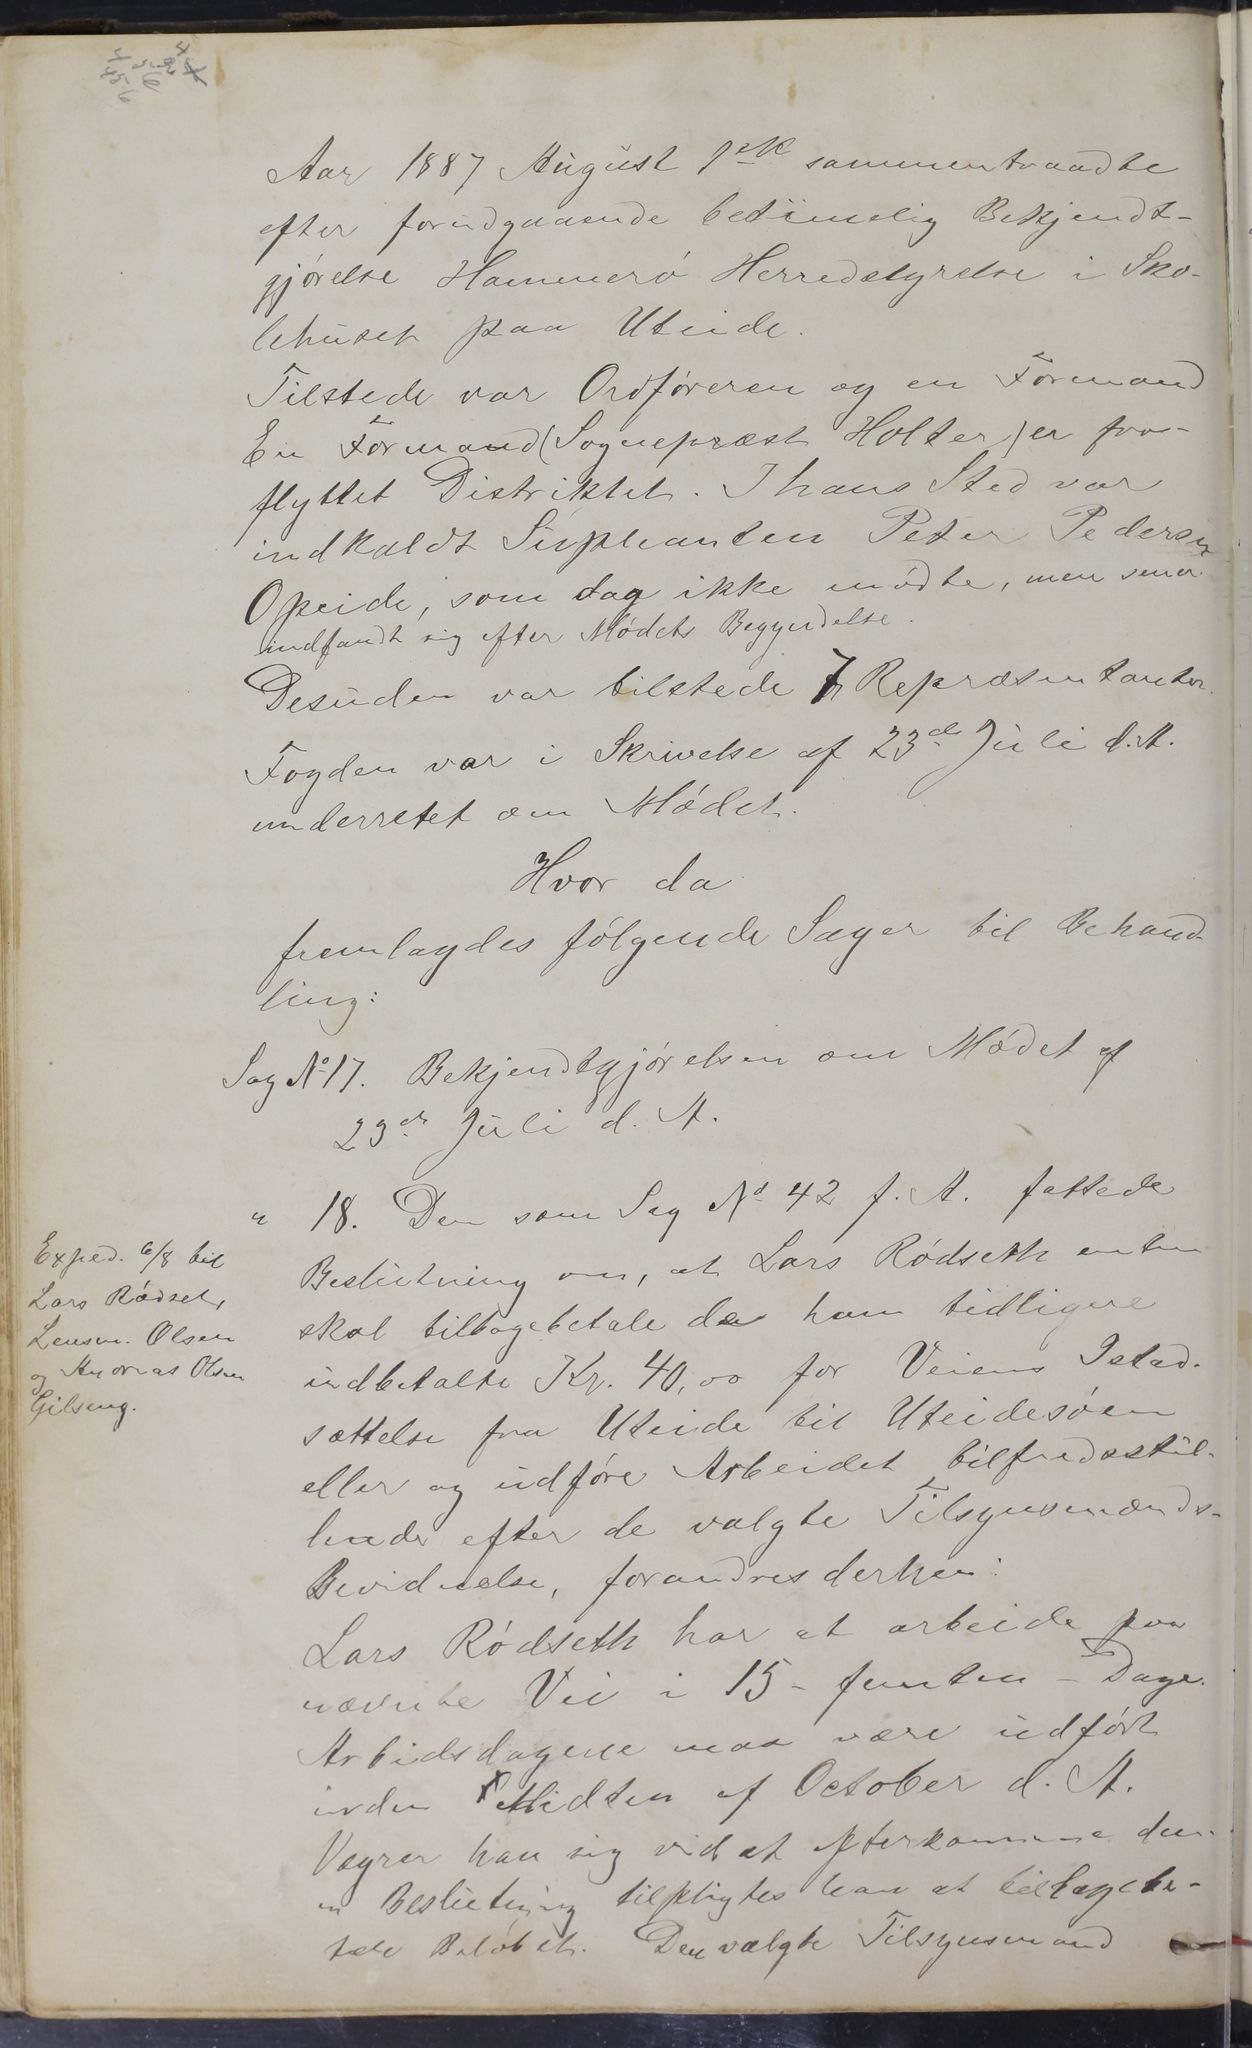 Aar 1887 August 1ste sammentraadte
efter forudgaaende betimelig Bekjendt-
gjørelse Hammerø Herredstyrelse i Sko-
lehuset paa Uteide.
Tilstede var Ordføreren og en Formand
En Formand (Sognepræst Holter) er fra-
flyttet Distriktet. I hans Sted var
indkaldt Supleanten Peter Pedersen
Opeide, som dog ikke mødte, men sener
indfandt sig efter Mødets Begyndelse.
Desuden var tilstede 7 Repræsentanter.
Fogden var i Skrivelse af 23de Juli d. A.
underrettet om Mødet.
Hvor da
fremlagdes følgende Sager til Behand-
ling:
Sag No 17. Bekjendtgjørelsen om Mødet af
23de Juli d. A.
" 18. Den som Sag No 42 f. A. fattede
Beslutning om, at Lars Rødseth enten
skal tilbagebetale de ham tidligere
indbetalte Kr. 40,00 for Veiens Istad-
sættelse fra Uteide til Uteidesøen
eller og udføre Arbeidet tilfredsstil-
lende efter de valgte Tilsynsmænds-
Bevidnelse, forandres derhen:
Lars Rødseth har at arbeide paa
nævnte Vei i 15 - femten - Dage.
Arbeidsdagene maa være udført
inden Midten af October d. A.
Vægrer han sig ved at efterkomme den-
ne Beslutning tilpligtes han at tilbagebe-
tale Beløbet. Den valgte Tilsynsmand
Exped. 6/8 til
Lars Rødset,
Lensm. Olsen
og Andreas Olsen
Gilseng.